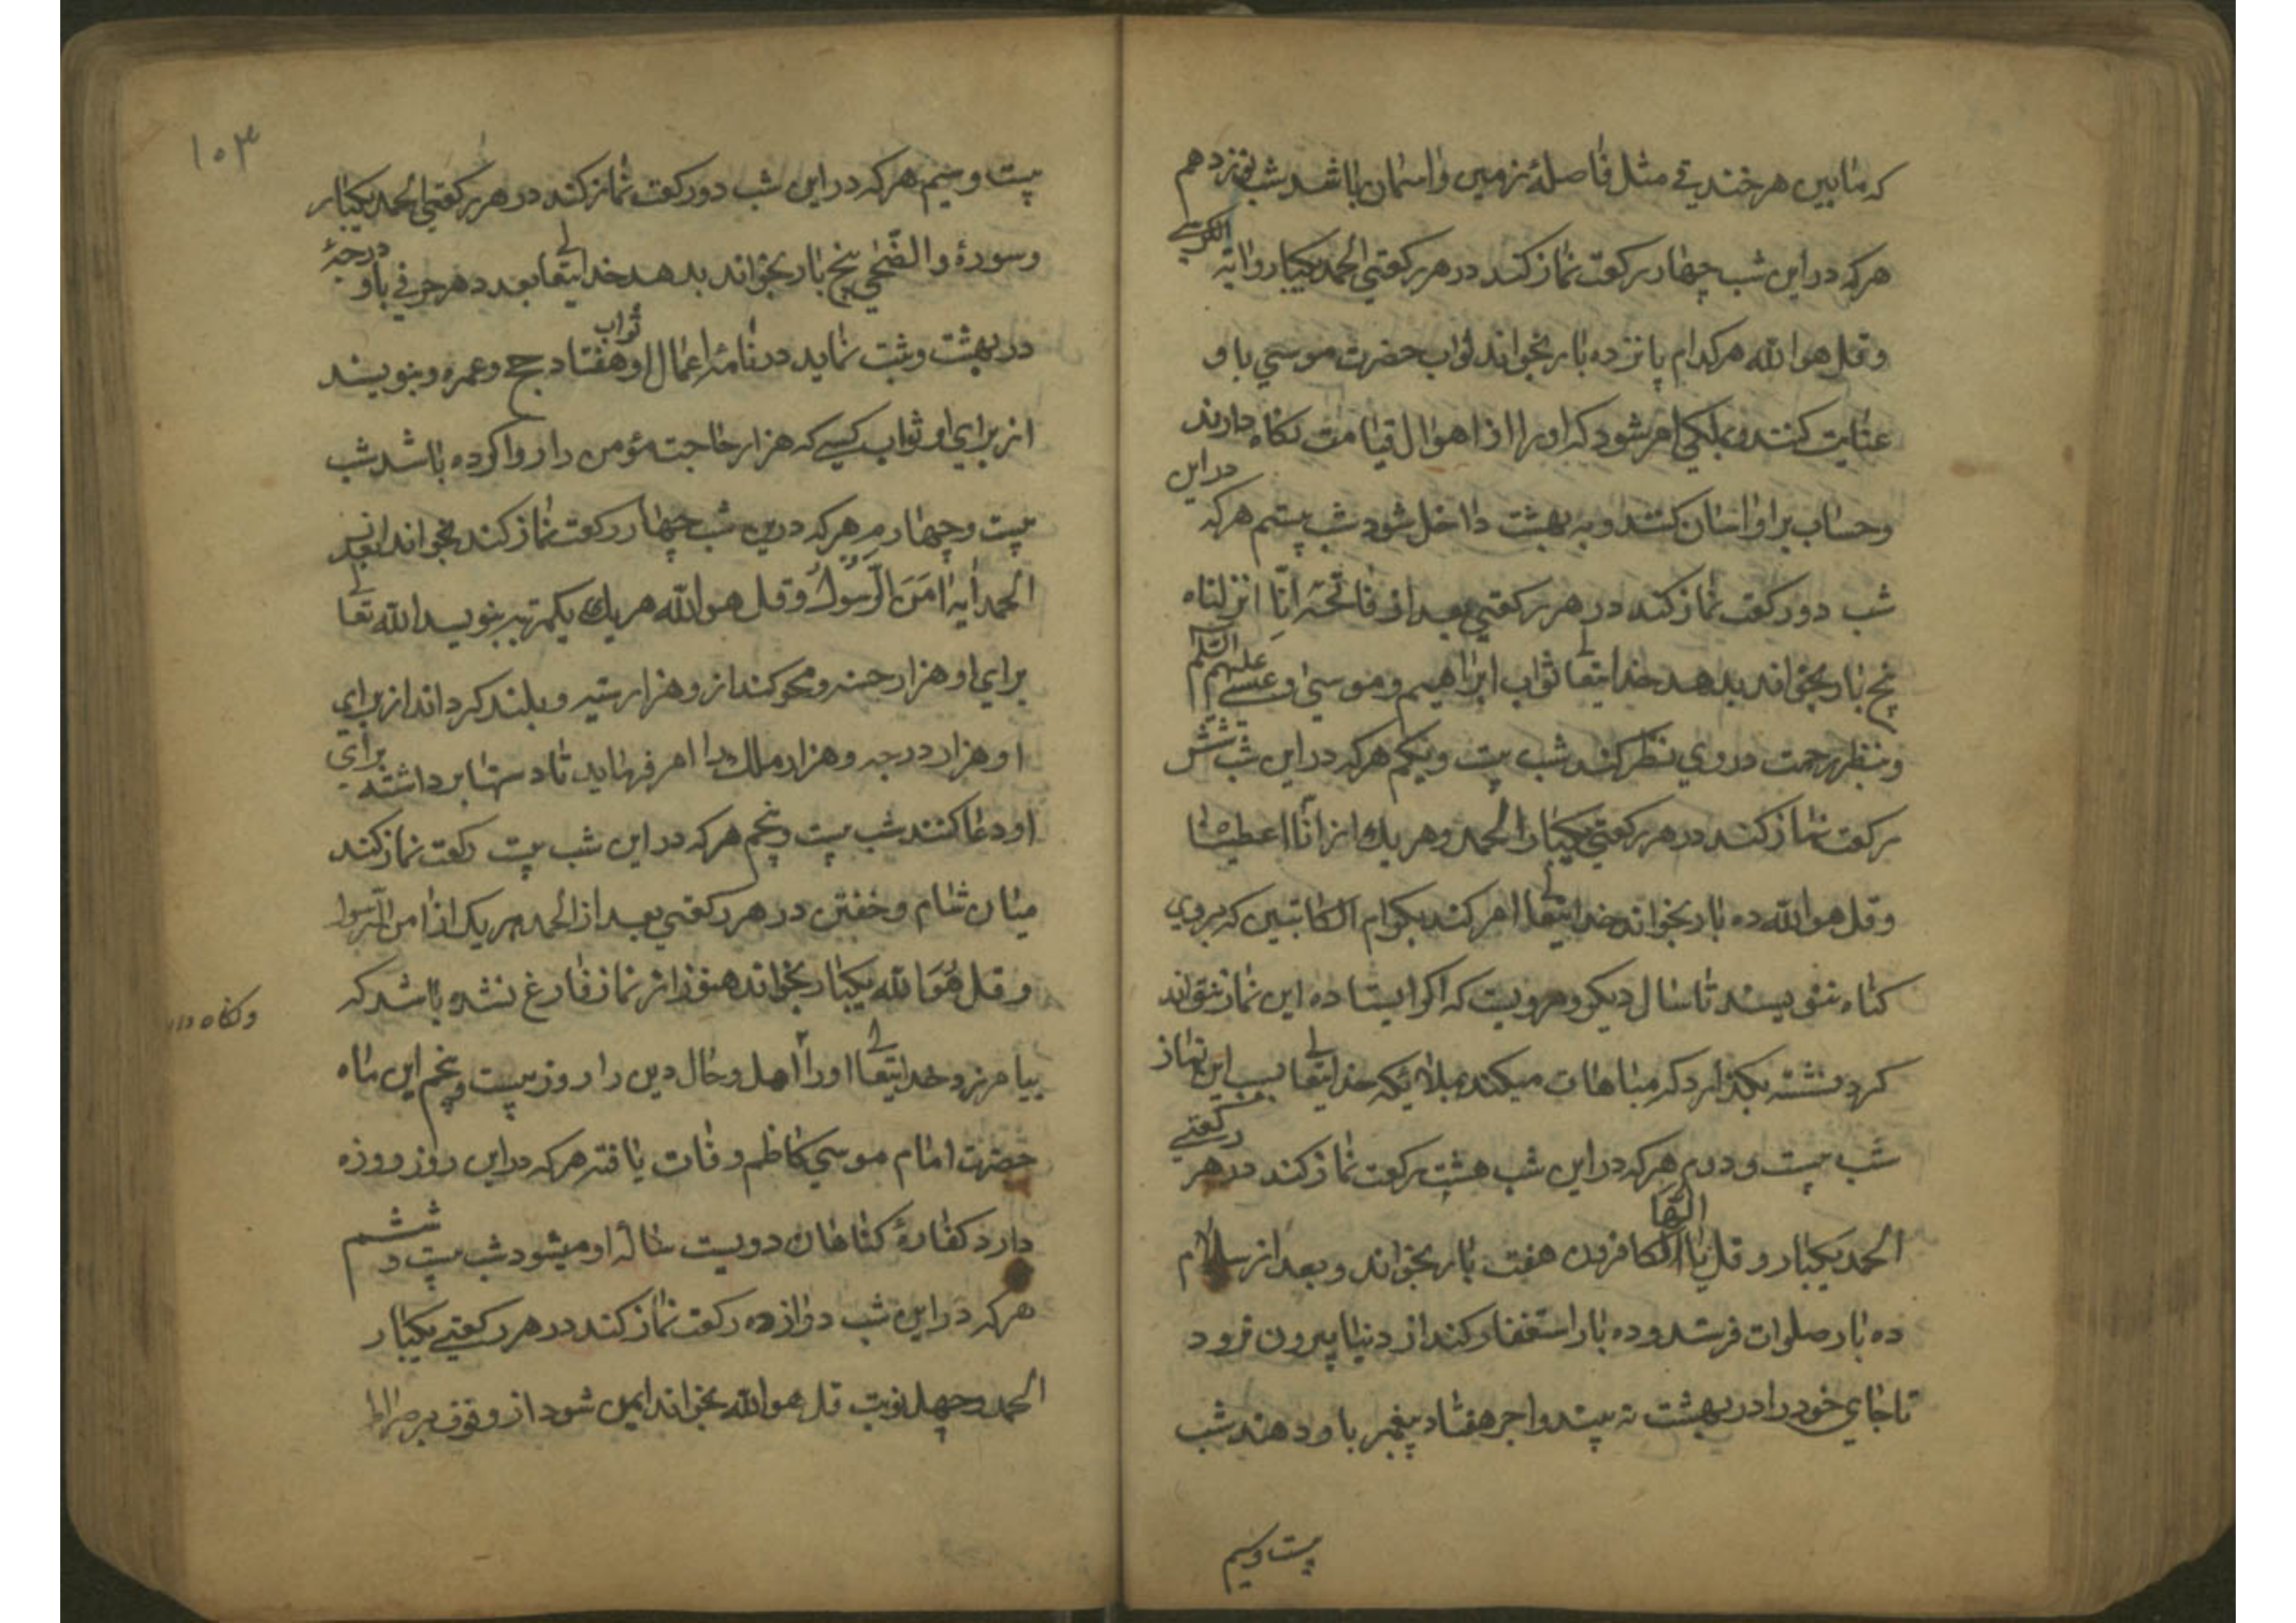 که مابین هر خندیقے مثل فاصلهٔ زمین واسمان باشد شب نوزدهم
هرکه در این شب چهار رکعت نماز کند در هر رکعتي الحمد یکبار وایة الکرسے
وقل هو الله هرکدام پانزده بار بخواند ثواب حضرت موسي باو
عنایت کنند وبملکي امر شود که اورا از اهوال قیامت نکاه دارند
وحساب بر او اسان کنند وبه بهشت داخل شود شب بیستم هرکه در این
شب دو رکعت نماز کند در هر رکعتي بعد از فاتحه انّا انزلناه
پنج بار بخواند بدهد خدایتعالے ثواب ابراهیم وموسي وعیسے علیهم السّلم
وبنظر رحمت در وي نظر کند شب بیست ویکم هرکه در این شب شش
رکعت نماز کند در هر رکعتي یکبار الحمد وهر یك از انّا اعطینا
وقل هو الله ده بار بخواند خدایتعالے امر کند بکرام الکاتبین که بروي
کناه ننویسند تا سال دیکر ومرویست که اکر ایستاده این نماز نتواند
کرد نشسته بکذارد که مباهات میکند بملائکه خدایتعالے بسبب این نماز
شب بیست ودوم هرکه در این شب هشت رکعت نماز کند در هر رکعتے
الحمد یکبار وقل یا ایّها الکافرون هفت بار بخواند وبعد از سلام
ده بار صلوات فرستد وده بار استغفار کند از دنیا بیرون نرود
تا جاي خود را در بهشت نه بیند واجر هفتاد پیغمبر باو دهند شب
بیست وسیم
۱۰۳
بیست وسیم هرکه در این شب دو رکعت نماز کند در هر رکعتي الحمد یکبار
وسورهٔ والضّحي پنج بار بخواند بدهد خدایتعالے بعدد هر حرفي باو درجهٔ
در بهشت وثبت نماید در نامهٔ اعمال او ثواب هفتاد حج وعمره وبنویسند
از براي او ثواب کسي که هزار حاجت مؤمن را روا کرده باشد شب
بیست وچهارم هرکه درین شب چهار رکعت نماز کند بخواند بعد از
الحمد ایه امَنَ الرّسُولُ وقل هو الله هر یك یکمرتبه بنویسد الله تعالے
براي او هزار حسنه ومحو کند ازو هزار سیئه وبلند کرداند از براي
او هزار درجه وهزار ملك را امر فرماید تا دستها برداشته براي
او دعا کنند شب بیست وپنجم هرکه در این شب بیست رکعت نماز کند
میان شام وخفتن در هر رکعتي بعد از الحمد هر یک از امن الرّسول
وقل هُوَ الله یکبار بخواند هنوز از نماز فارغ نشده باشد که
بیامرزد خدایتعالے اورا اهل ومال دین را روز بیست وپنجم این ماه
ونکاه دارد
حضرت امام موسي کاظم وفات یافته هرکه در این روز روزه
دارد کفّارهٔ کناهان دویست ساله او میشود شب بیست وششم
هرکه در این شب دوازده رکعت نماز کند در هر رکعتے یکبار
الحمد وچهل نوبت قل هو الله بخواند ایمن شود از وقوف بر صراط